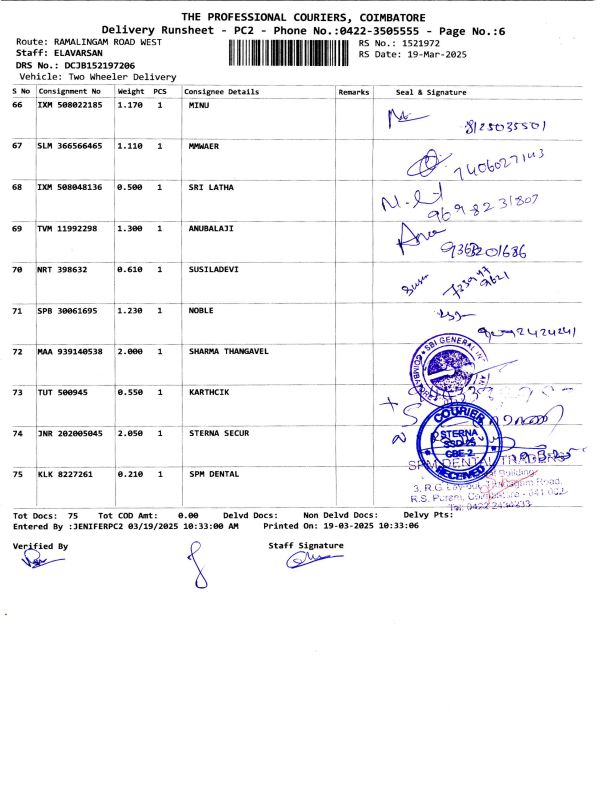 THE PROFESSIONAL COURIERS, COIMBATORE
Delivery Runsheet - PC2 - Phone No.:0422-3505555 - Page No.:6
Route: RAMALINGAM ROAD WEST
RS No.: 1521972
Staff: ELAVARSAN
RS Date: 19-Mar-2025
DRS No.: DCJB152197206
Vehicle: Two Wheeler Delivery
S No Consignment No Weight PCS Consignee Details Remarks Seal & Signature
66 IXM 508022185 1.170 1 MINU
8125035501
67 SLM 366566465 1.110 1 MMWAER
7406027143
68 IXM 508048136 0.500 1 SRI LATHA
9698231807
69 TVM 11992298 1.300 1 ANUBALAJI
70 NRT 398632 0.610 1 SUSILADEVI
71 SPB 30061695 1.230 1 NOBLE
72 MAA 939140538 2.000 1 SHARMA THANGAVEL
SBI GENERAL
73 TUT 500945 0.550 1 KARTHCIK
74 JNR 202005045 2.050 1 STERNA SECUR
COURIER
STERNA
SSD-25
GBE-2
RECEIVED
75 KLK 8227261 0.210 1 SPM DENTAL
SPM DENTAL
Building
3, R.G. Road,
R.S. Puram, Coimbatore - 641 002
Tel: 0422
Tot Docs: 75 Tot COD Amt: 0.00 Delvd Docs: Non Delvd Docs: Delvy Pts:
Entered By :JENIFERPC2 03/19/2025 10:33:00 AM Printed On: 19-03-2025 10:33:06
Verified By
Staff Signature